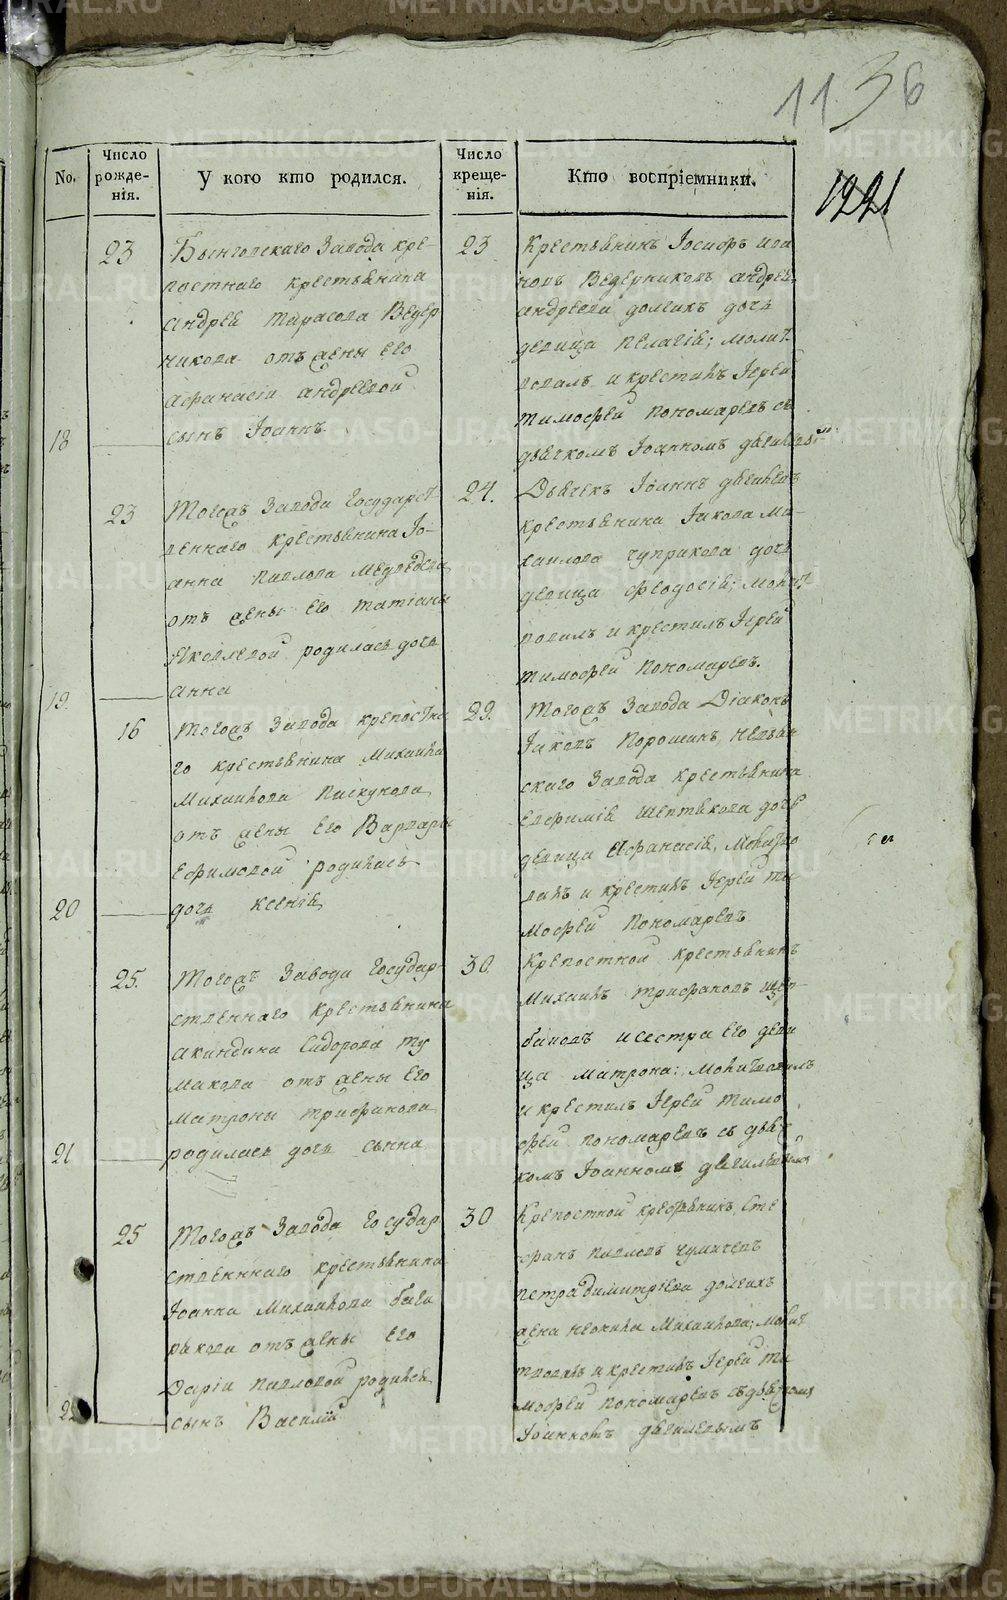 11 36
1221
No.
Число рожде-нія.
У кого кто родился.
Число креще-нія.
Кто воспріемники.
18
23
Бынговскаго Завода кре-
постнаго крестьянина
Андрея Тарасова Ведер
никова отъ жены его
Афанасіи Андреевой
сынъ Іоаннъ
23
Крестьянинъ Іосифъ Ива
новъ Ведерниковъ Андрея
Андреева долгихъ дочь
девица Пелагія; молит
вовалъ и крестилъ Іерей
Тимофей Пономаревъ съ
дьячкомъ Іоанномъ
19.
23
Тогожъ Завода Государст
веннаго крестьянина Іо-
анна Павлова Медведева
отъ жены его Татіаны
Яковлевой родилась дочь
Анна
24.
Дьячекъ Іоаннъ
крестьянина Іакова Ми-
хаилова Чуприкова дочь
девица Феодосія; молит
вовалъ и крестилъ Іерей
Тимофей Пономаревъ.
20
16
Тогожъ Завода крепостна
го крестьянина Михаила
Михаилова Пискунова
отъ жены его Варвары
Ефимовой родилась
дочь Ксенія
29.
Тогожъ Завода Діаконъ
Іаковъ Порошинъ, Невьян
скаго Завода крестьянина
Евфимія дочь
девица Афанасія, Молитво
валъ и крестилъ Іерей Ти
мофей Пономаревъ
21
25.
Тогожъ Завода Государ-
ственнаго Крестьянина
Акиндина Сидорова Ту
макова отъ жены его
Матроны Трифанова
родилась дочь Анна
30.
Крепостной крестьянинъ
Михаилъ Трифановъ Щер-
баковъ и сестра его деви
ца Матрона; молитвовалъ
и крестилъ Іерей Тимо
фей Пономаревъ съ дьяч
комъ Іоанномъ
22
25
Тогожъ Завода Государ
ственннаго крестьянина
Іоанна Михаилова
отъ жены его
Даріи Павловой родился
сынъ Василій
30
Крепостной крестьянинъ Сте
фанъ Павловъ
Петра Димитріева долгихъ
жена Неонила Михаилова; молит
вовалъ и крестилъ Іерей Ти
мофей Пономаревъ съ дьячкомъ
METRIKI.GASO-URAL.RU